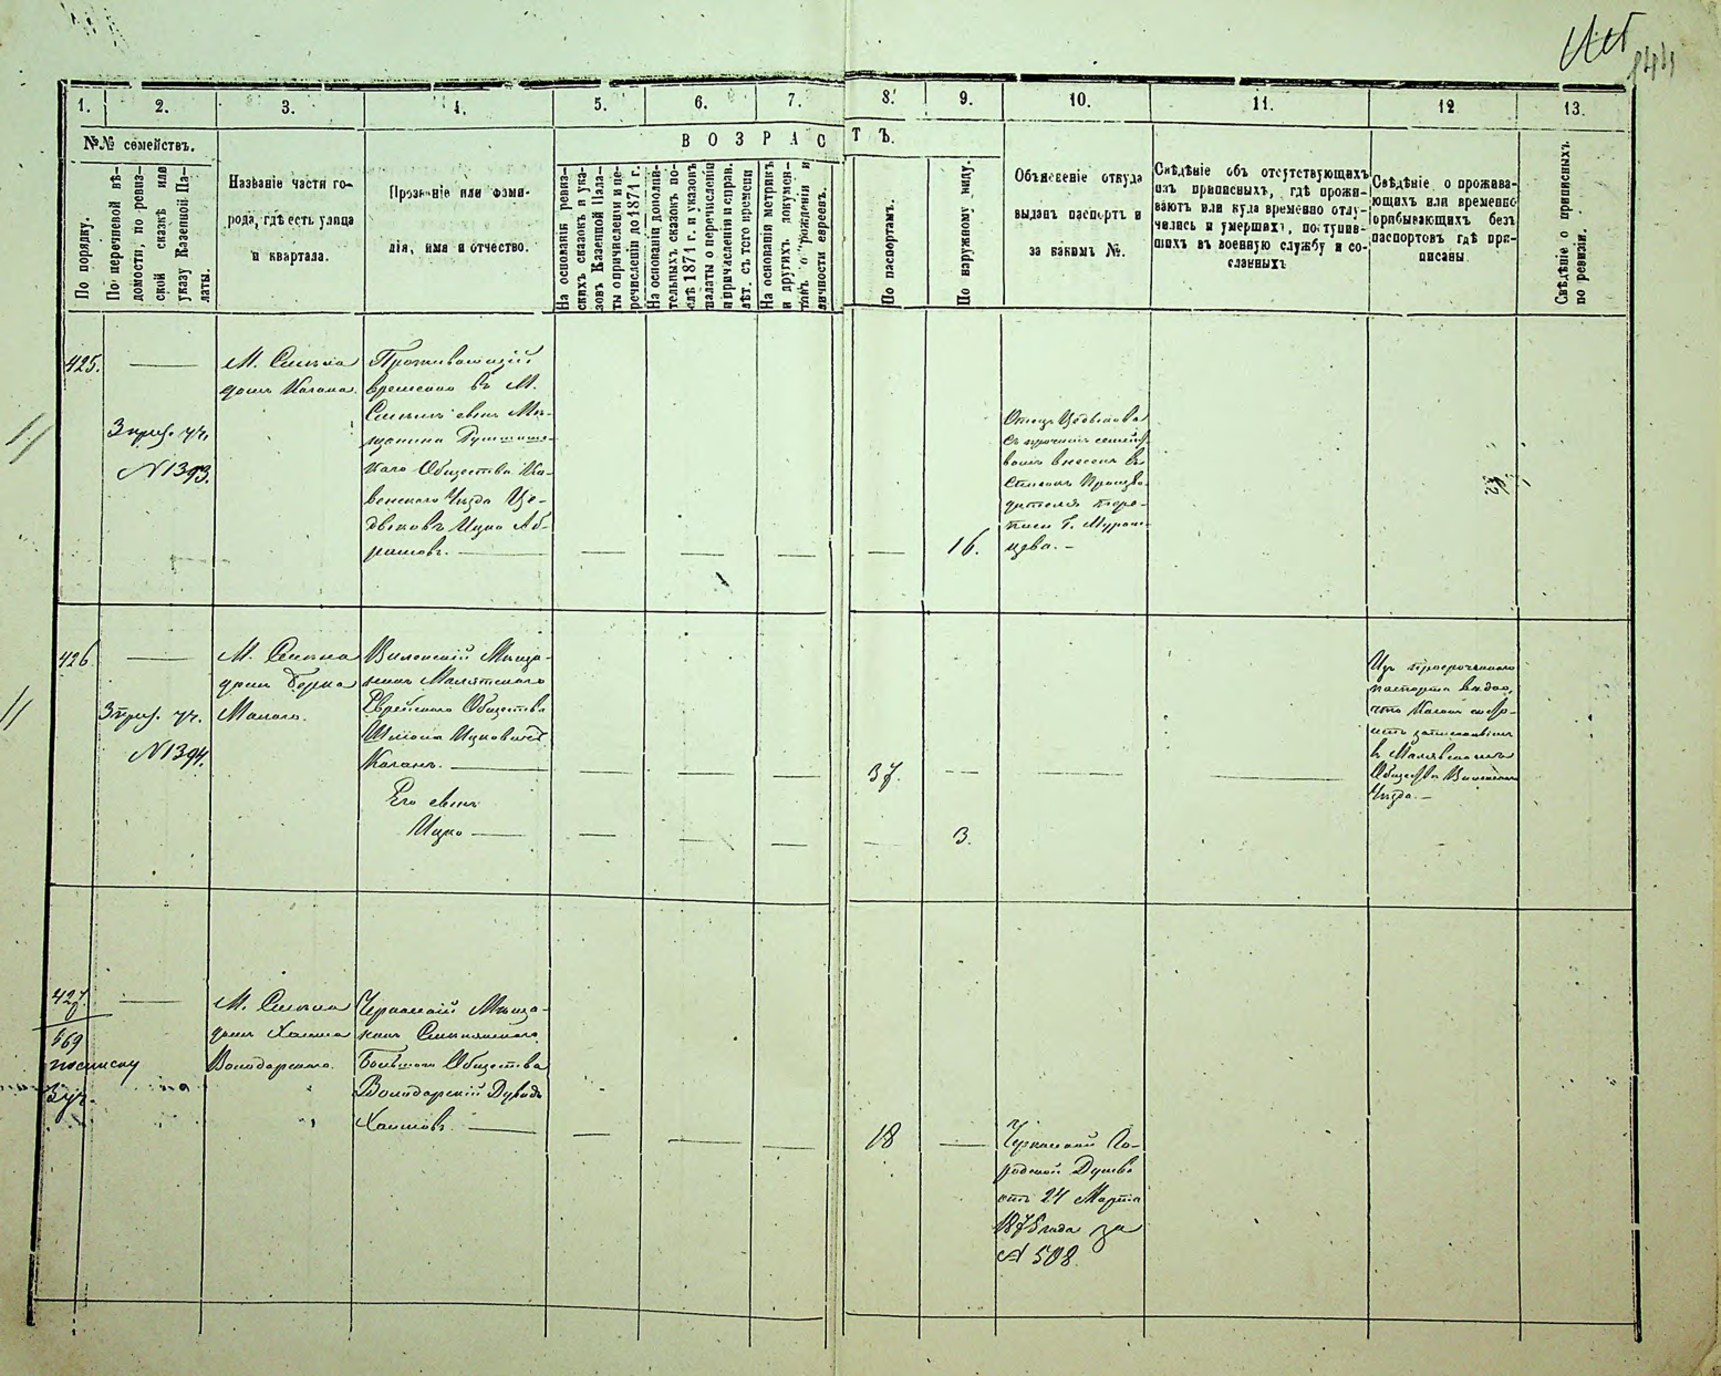 144
1. 2. 3. 4. 5. 6. 7. 8. 9. 10. 11. 12 13.
№№ семействъ.
В О З Р А С Т Ъ.
По порядку.
По перечневой вѣ-
домости, по ревиз-
ской сказкѣ или
указу Казенной Па-
латы.
Названіе части го-
рода, гдѣ есть улица
и квартала.
Прозваніе или фами-
лія, имя и отчество.
На основаніи ревиз-
скихъ сказокъ и ука-
зовъ Казенной Пала-
ты о причисленіи и пе-
речисленіи до 1871 г.
На основаніи дополни-
тельныхъ сказокъ по-
слѣ 1871 г. и указовъ
палаты о перечисленіи
и причисленіи и справ.
лѣт. съ того времени
На основаніи метрикъ
и другихъ докумен-
товъ о рожденіи и
личности евреевъ.
По паспортамъ.
По наружному виду.
Объясненіе откуда
выданъ паспортъ и
за какимъ №.
Свѣдѣніе объ отсутствующихъ
изъ приписныхъ, гдѣ прожи-
ваютъ или куда временно отлу-
чились и умершихъ, поступив-
шихъ въ военную службу и со-
сланныхъ
Свѣдѣніе о прожива-
ющихъ или временно
прибывающихъ безъ
паспортовъ гдѣ при-
писаны
Свѣдѣніе о приписныхъ
по ревизіи.
425.
3 приз. уч.
№ 1393.
М. Смѣла
домъ Кагана.
Проживающій
временно въ М.
Смѣлѣ сынъ Мѣ-
щанина
каго Общества Ко-
венскаго Уѣзда Це-
Ицко Аб-
рамовъ.
16.
Отецъ
съ прочимъ семей-
вомъ внесенъ въ
Списокъ Произво-
дителя пере-
писи Г. Муром-
цева.
426
3 приз. уч.
№ 1394.
М. Смѣла
домъ Берка
Малаго.
Виленскій Мѣща-
нинъ Малятскаго
Еврейскаго Общества
Шлiома Ицковичъ
Каганъ.
37.
Его сынъ
Ицко
3.
Изъ просроченнаго
паспорта видно,
что Каганъ
записаннымъ
въ Малятскомъ
Обществѣ Виленскаго
Уѣзда.
427.
169
посписку
3 уч.
М. Смѣла
домъ Хаима
Володарскаго.
Черкаскій Мѣща-
нинъ Смѣлянскаго
Общества
Володарскій Дувидъ
Хаимовъ.
18
Черкаской Го-
родской Думы
отъ 24 Марта
1875 года за
№ 508